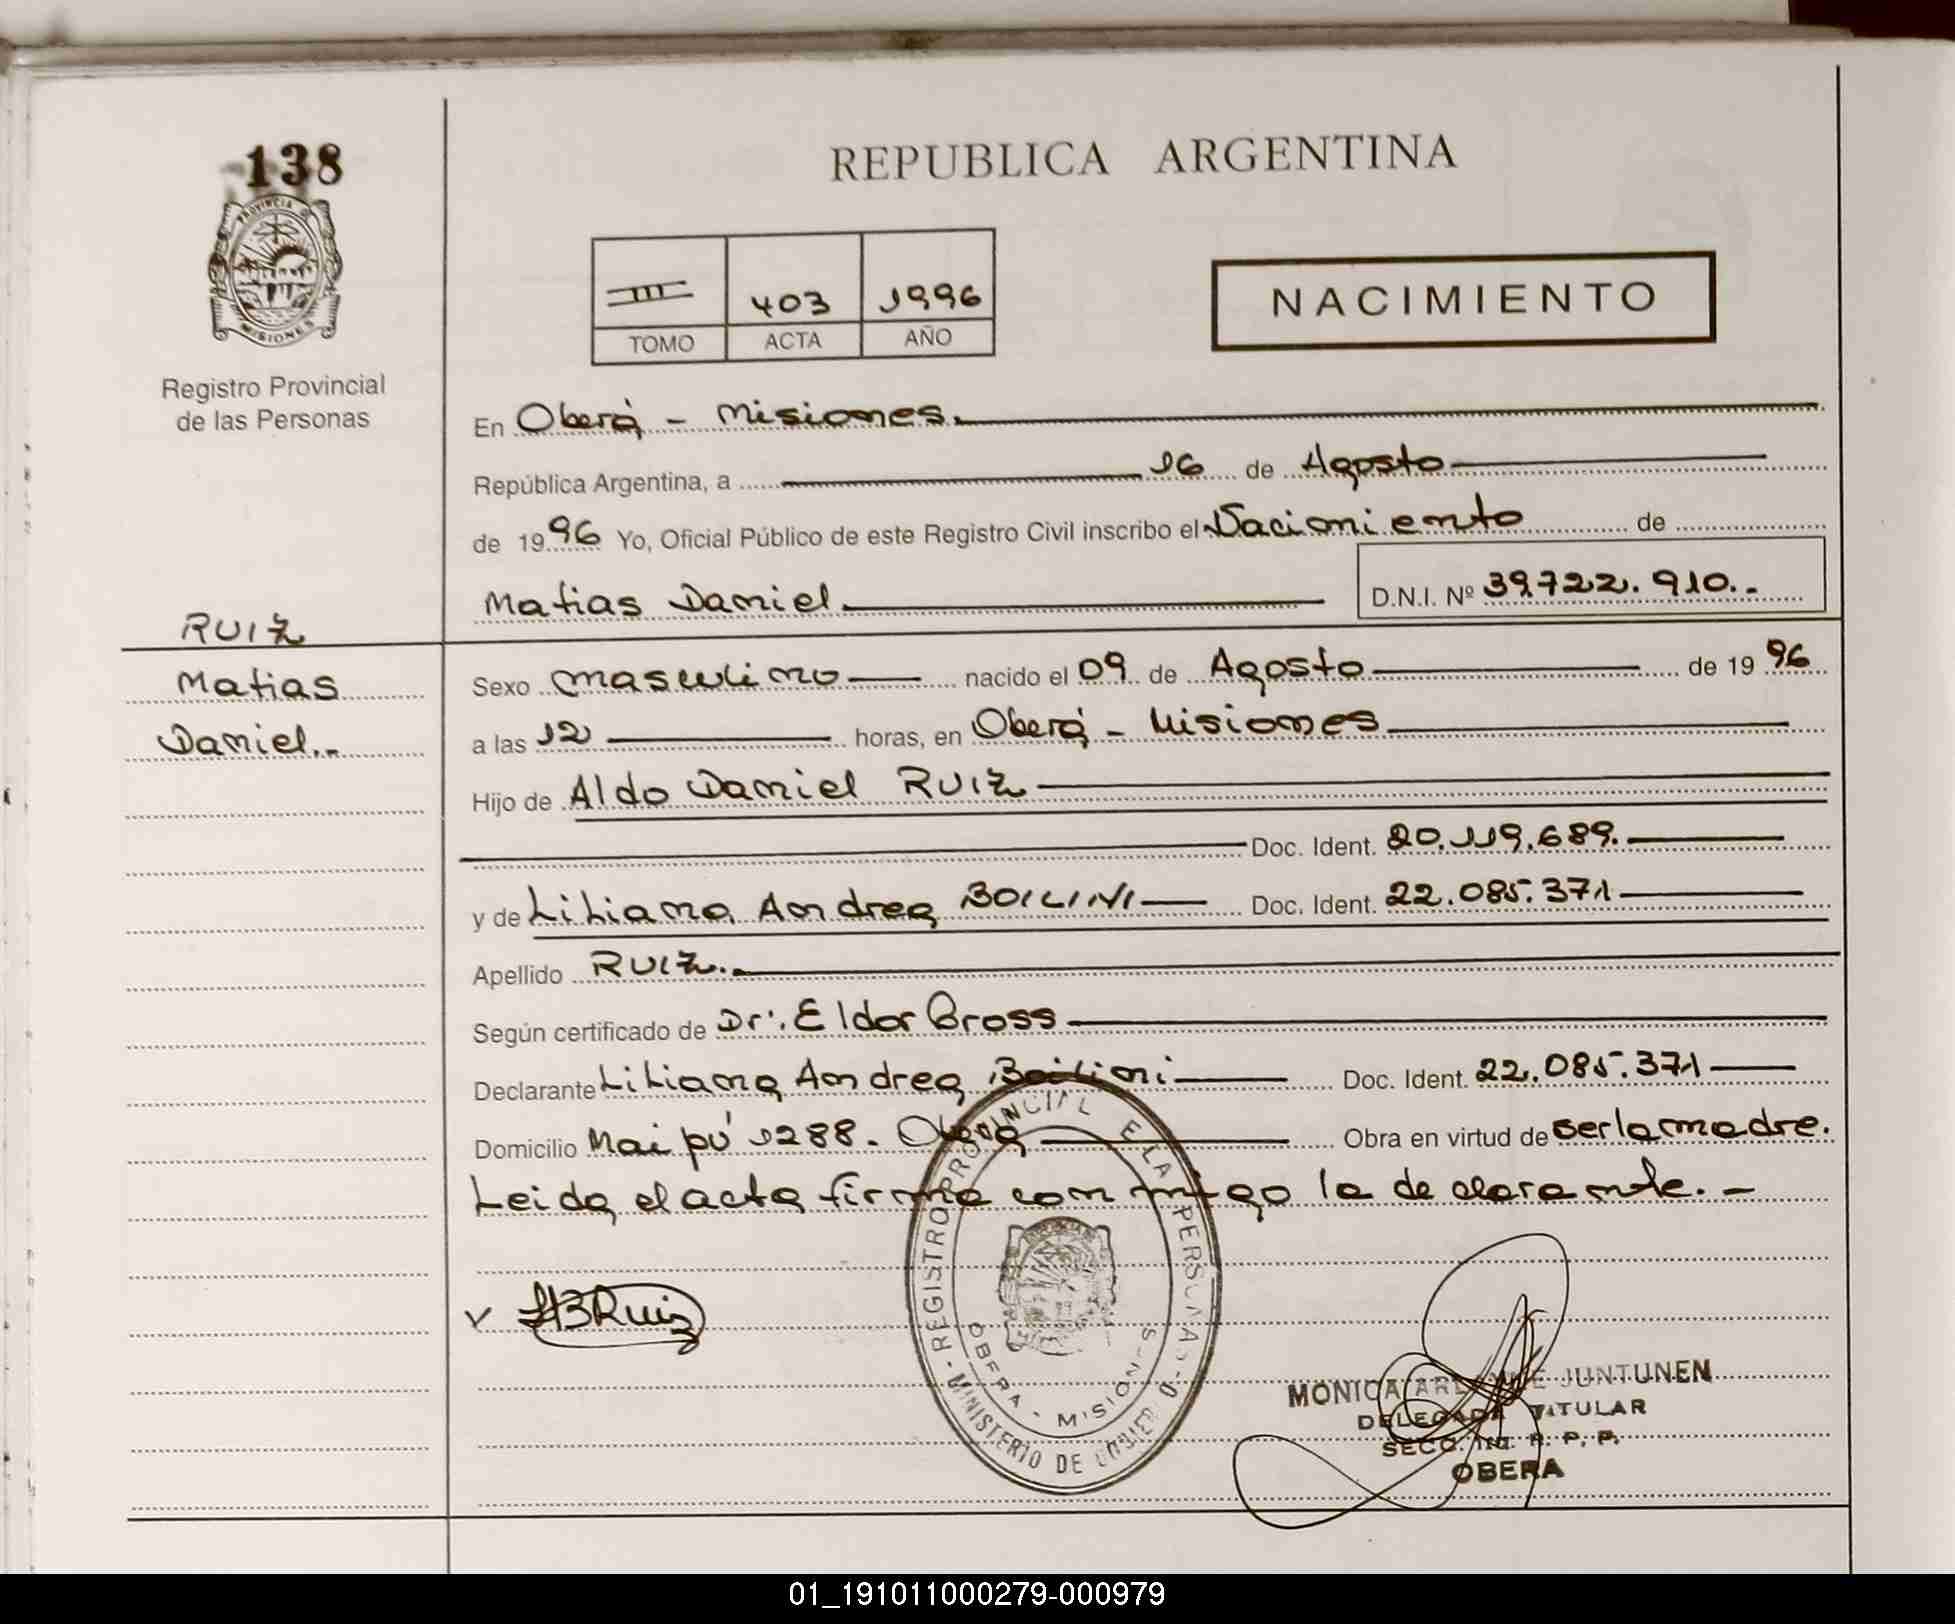 138
PROVINCIA D
MISIONES
Registro Provincial
de las Personas
REPUBLICA ARGENTINA
III 403 1996
TOMO ACTA AÑO
NACIMIENTO
En Oberá - Misiones.
República Argentina, a 16 de Agosto
de 1996 Yo, Oficial Público de este Registro Civil inscribo el Nacimiento de
Matias Daniel D.N.I. Nº 39.722.910.-
RUIZ
Matias
Daniel.-
Sexo masculino nacido el 09 de Agosto de 1996
a las 12 horas, en Oberá - Misiones
Hijo de Aldo Daniel RUIZ
Doc. Ident. 20.119.689.
y de Liliana Andrea BOILINI Doc. Ident. 22.085.371
Apellido RUIZ.
Según certificado de Dr. Eldor Bross
Declarante Liliana Andrea Boilini Doc. Ident. 22.085.371
Domicilio Maipú 1288. Oberá Obra en virtud de ser la madre.
Leida el acta firma con migo la declarante. -
V LABRuiz
REGISTRO PROVINCIAL E LA PERSONAS
MINISTERIO DE
OBERA - MISIONES
MONICA JUNTUNEN
DELEGADA TITULAR
SECC. R. P. P.
OBERA
01_191011000279-000979